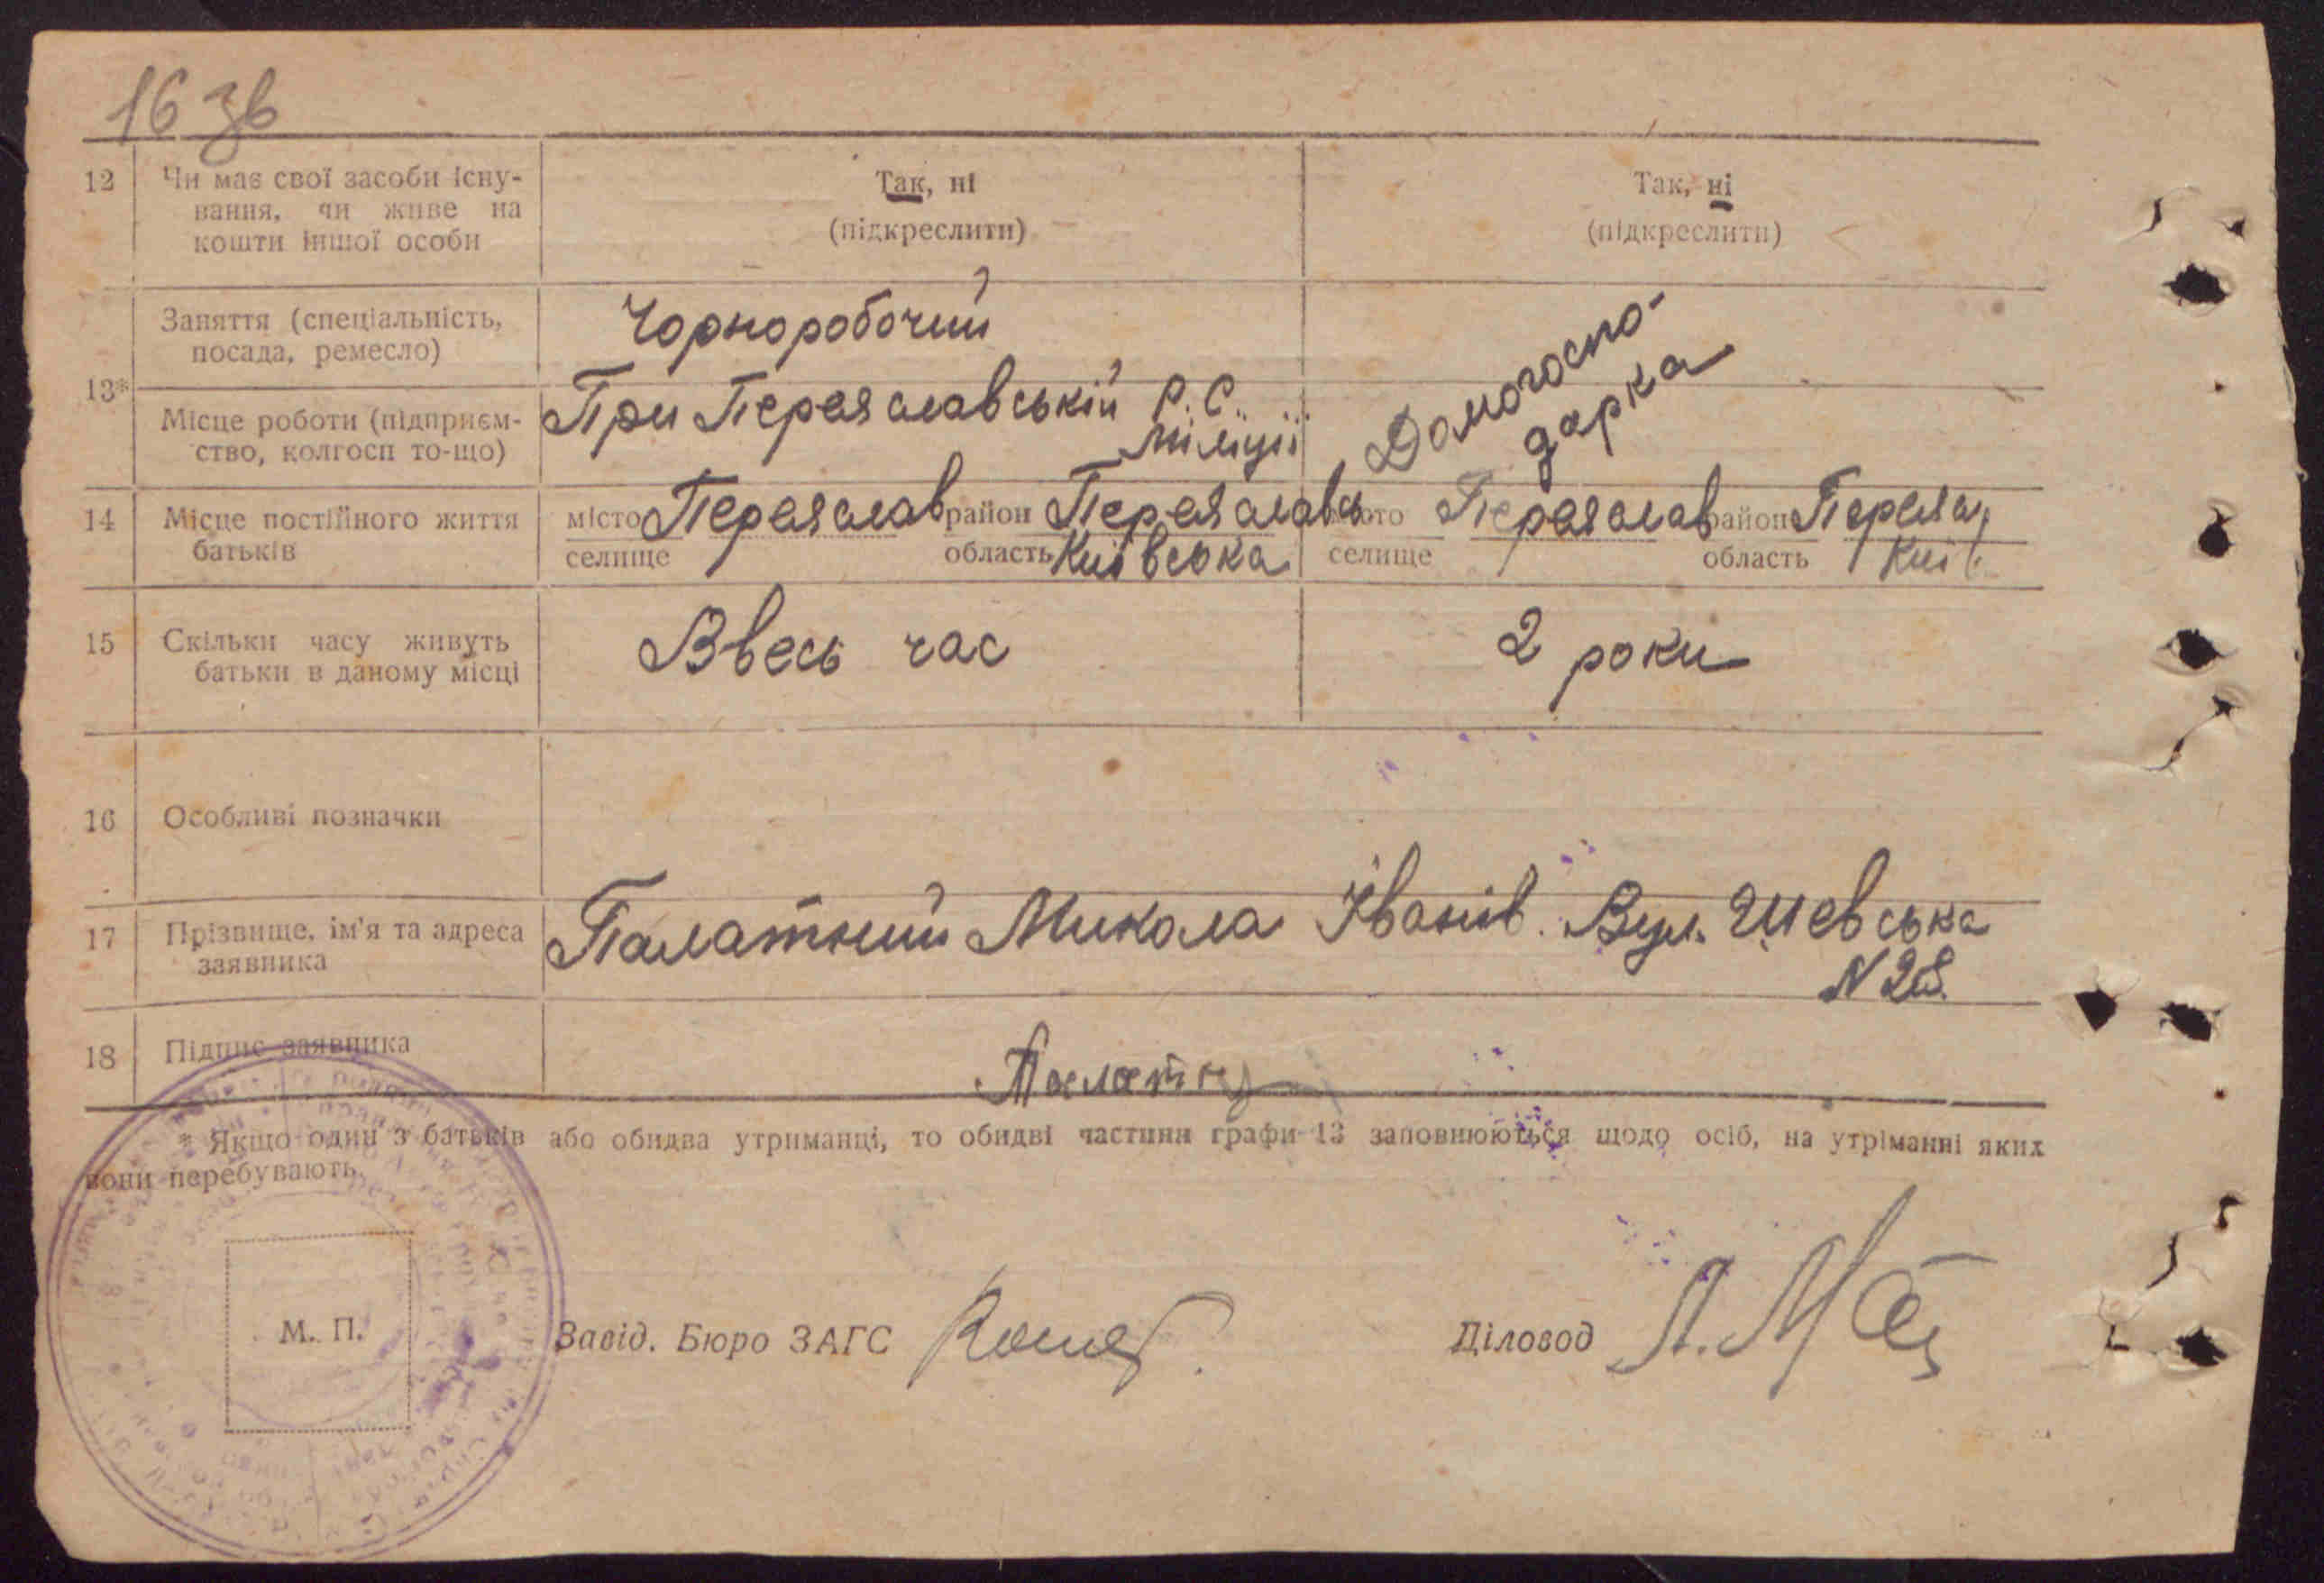 16 зв
12 Чи має свої засоби існу-
вання, чи живе на
кошти іншої особи
Так, ні
(підкреслити)
Так, ні
(підкреслити)
13*
Заняття (спеціальність,
посада, ремесло)
Чорноробочий
Домогоспо-
дарка
Місце роботи (підприєм-
ство, колгосп то-що)
При Переяславській Р. С.
міліції
14 Місце постійного життя
батьків
місто Переяслав район Переяславсь
селище область Київська
місто Переяслав район Переяс
селище область Київ
15 Скільки часу живуть
батьки в даному місці
Ввесь час
2 роки
16 Особливі позначки
17 Прізвище, ім'я та адреса
заявника
Палатний Микола Іванів. Вул.
N 28.
18 Підпис заявника
Палатн
* Якщо один з батьків або обидва утриманці, то обидві частини графи 13 заповнюються щодо осіб, на утріманні яких
вони перебувають.
М. П.
Завід. Бюро ЗАГС
Діловод